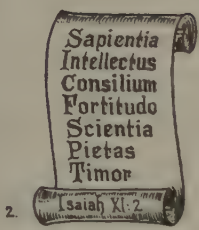 Sapientia
Intellectus
Consilium
Fortitudo
Scientia
Pietas
Timor
Isaiah XI:2
2.